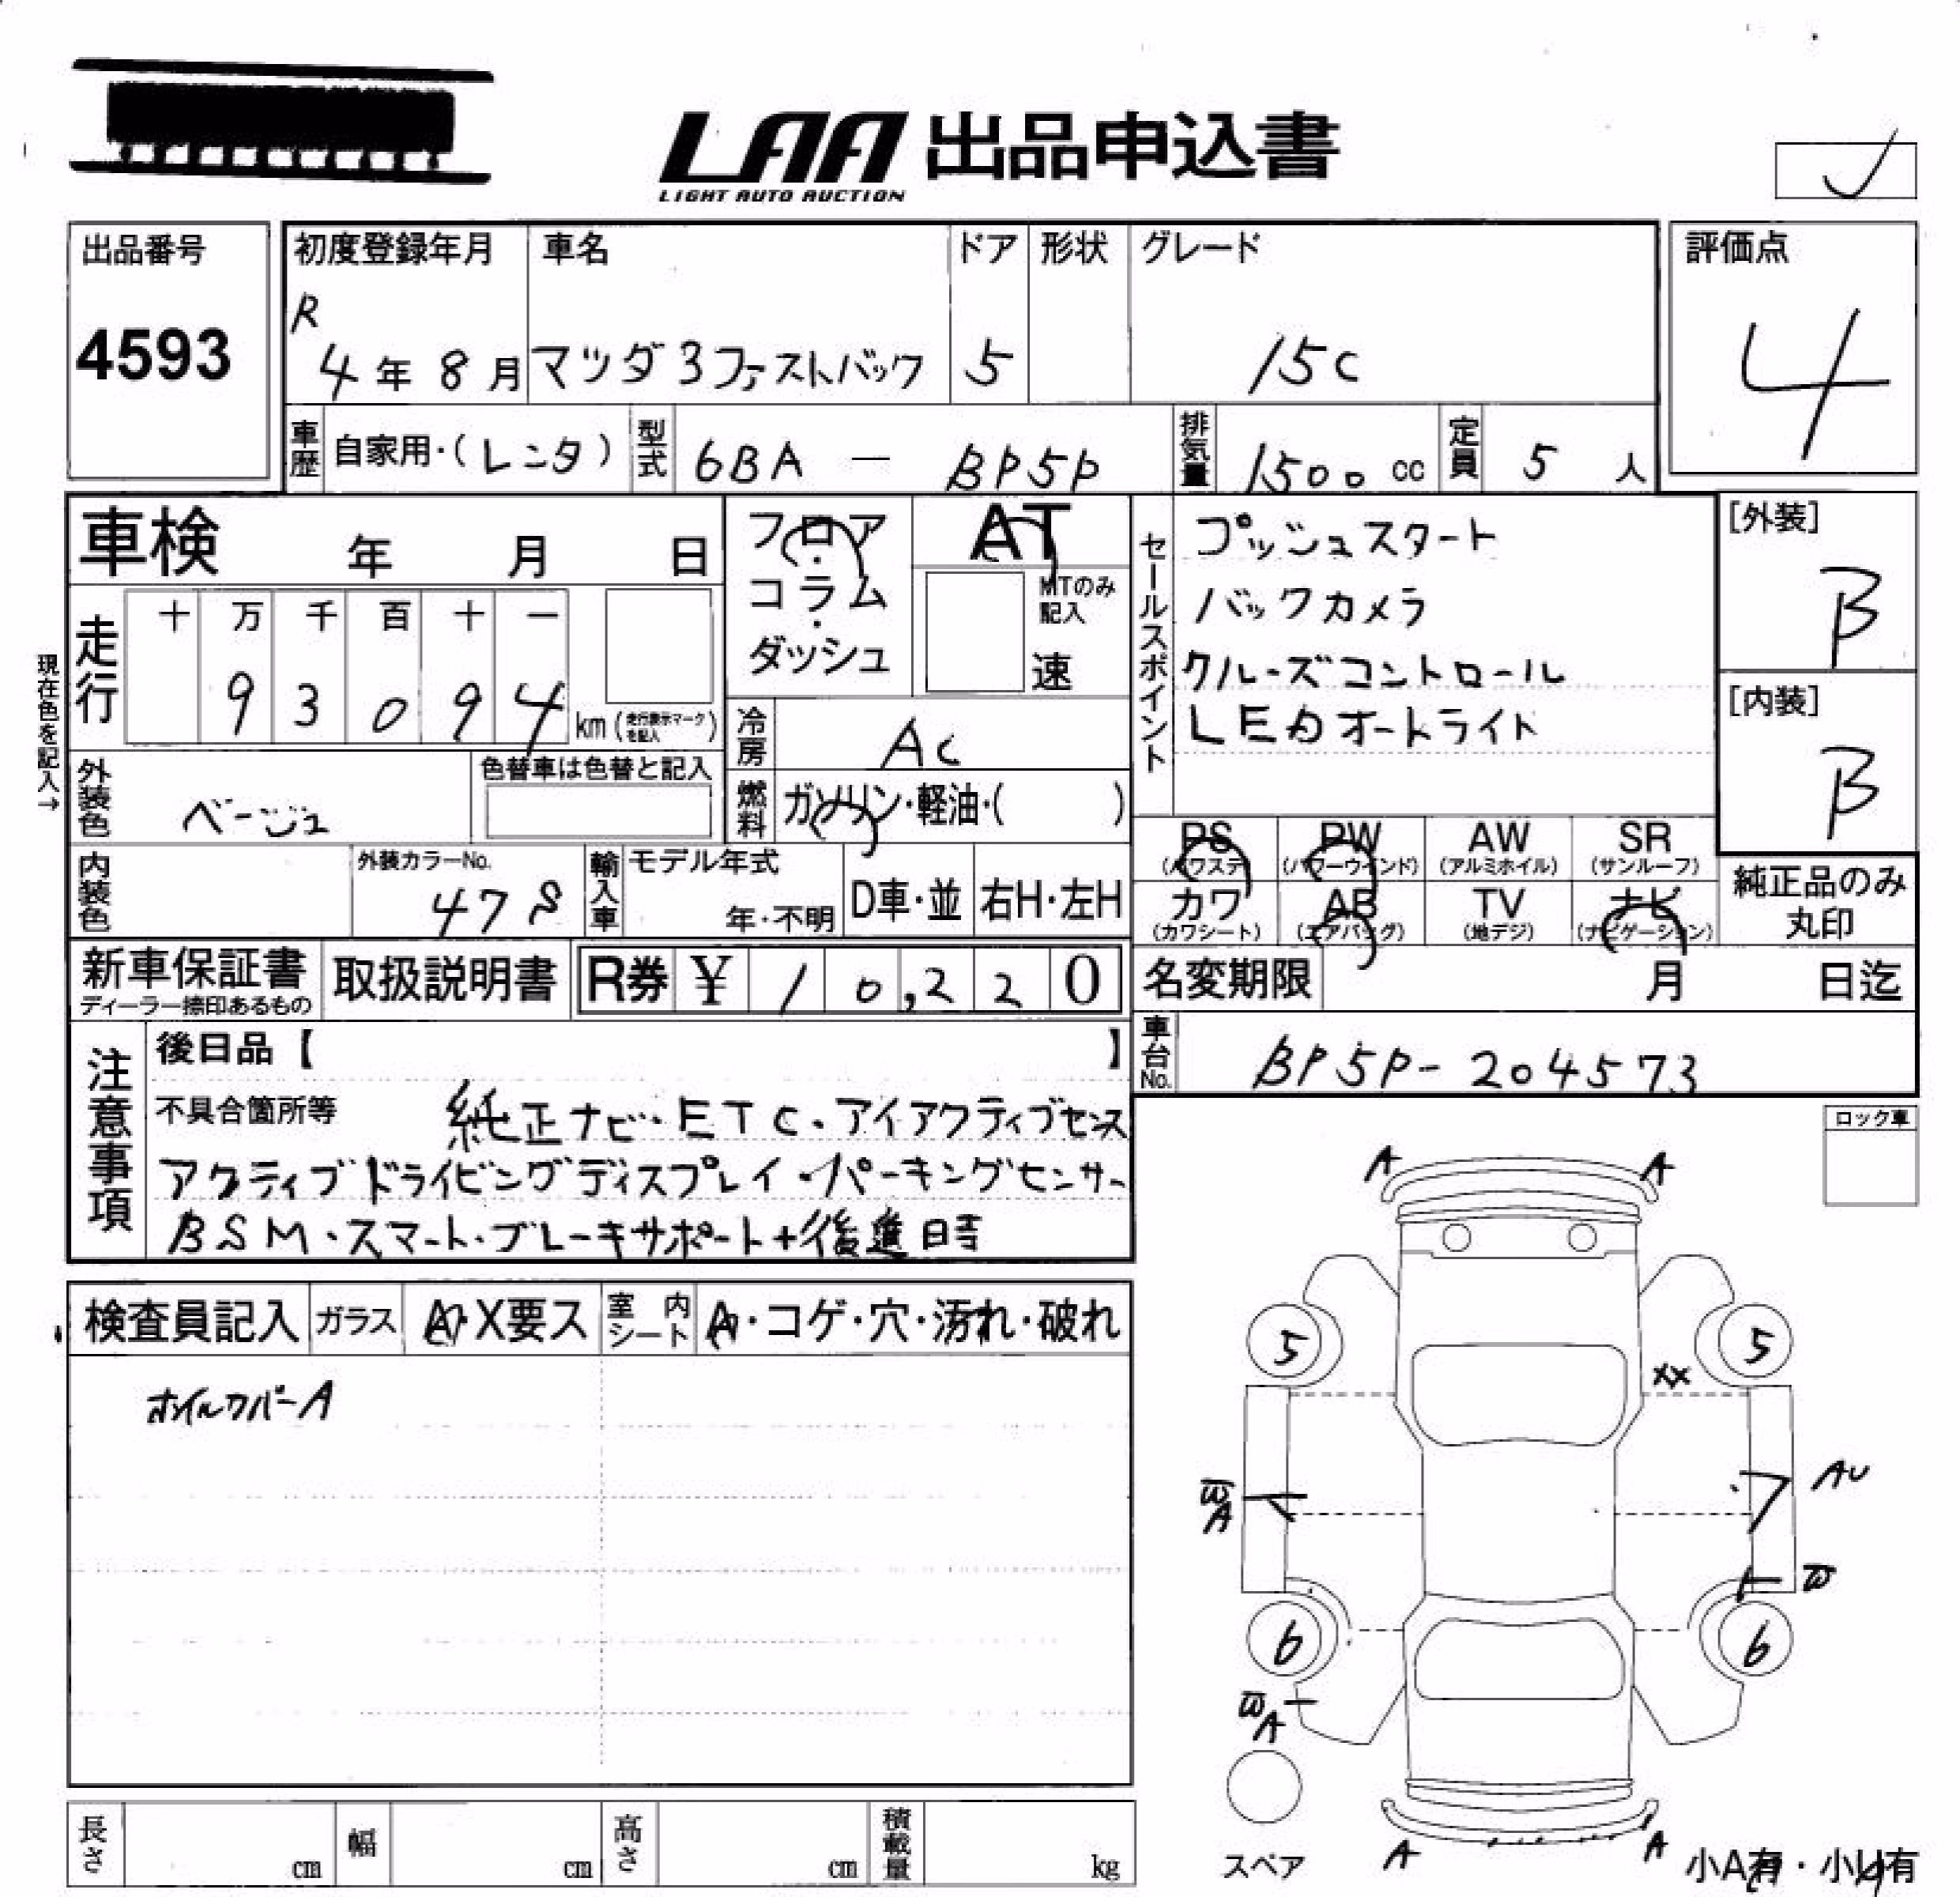 LAA 出品申込書
LIGHT AUTO AUCTION
出品番号
4593
初度登録年月
R
4年 8月
車名
マツダ3ファストバック
ドア
5
形状
グレード
15C
評価点
4
車歴 自家用・(レンタ)
型式 6BA - BP5P
排気量 1500cc
定員 5人
車検 年 月 日
フロア・コラム・ダッシュ
AT
MTのみ記入
速
セールスポイント
プッシュスタート
バックカメラ
クルーズコントロール
LEDオートライト
[外装]
B
[内装]
B
現在色を記入→
走行
十 万 千 百 十 一
9 3 0 9 4 km (走行表示マークを記入)
冷房 AC
外装色 ベージュ
色替車は色替と記入
燃料 ガソリン・軽油・( )
PS (パワステ)
PW (パワーウインド)
AW (アルミホイル)
SR (サンルーフ)
カワ (カワシート)
AB (エアバッグ)
TV (地デジ)
ナビ (ナビゲーション)
純正品のみ丸印
内装色
外装カラーNo.
47S
輸入車
モデル年式
年・不明
D車・並
右H・左H
新車保証書
ディーラー捺印あるもの
取扱説明書
R券 ¥ 10,220
名変期限 月 日迄
車台No. BP5P-204573
注意事項
後日品【 】
不具合箇所等 純正ナビ・ETC・アイアクティブセンス
アクティブドライビングディスプレイ・パーキングセンサー
BSM・スマート・ブレーキサポート+後進時
ロック車
検査員記入
ガラス A・X要ス
室内シート A・コゲ・穴・汚れ・破れ
ホイルカバーA
A A
5 5
XX
W
A
AU
W
6 6
W
A
スペア
A A
小A有・小U有
長さ cm
幅 cm
高さ cm
積載量 kg